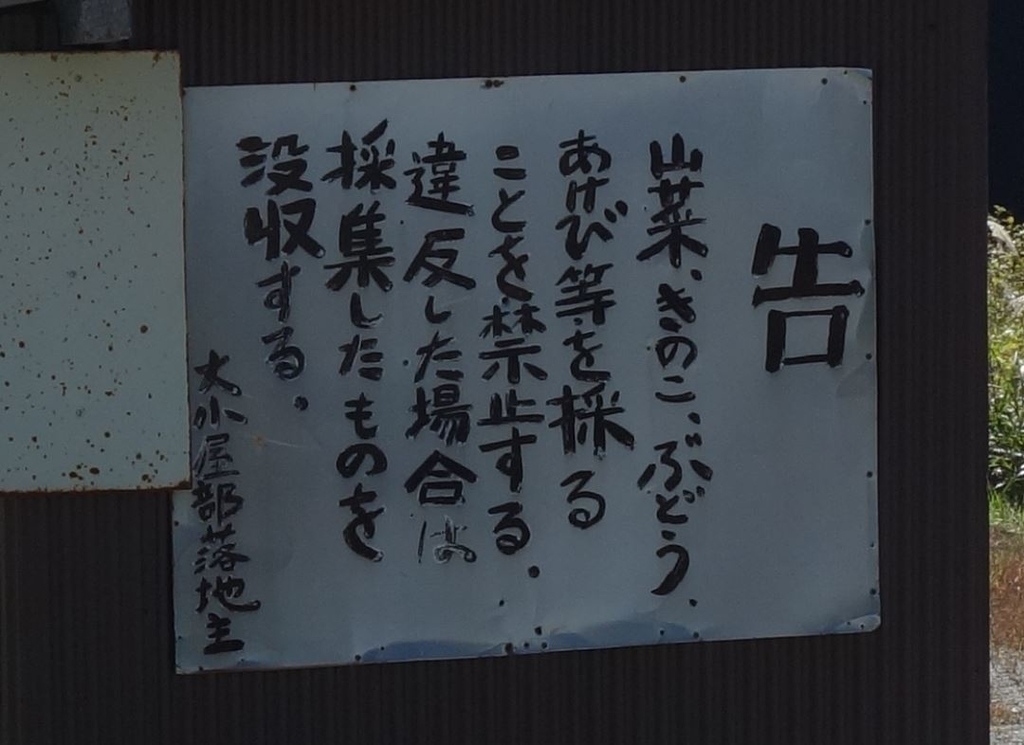 告
山菜、きのこ、ぶどう、
あけび等を採る
ことを禁止する。
違反した場合は
採集したものを
没収する。
大小屋部落地主